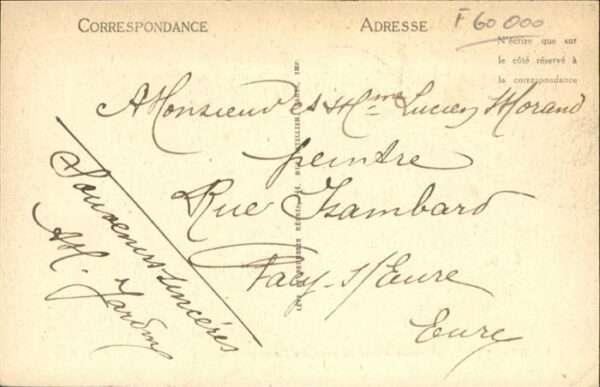 CORRESPONDANCE
ADRESSE
F 60 000
N'écrire que sur
le côté réservé à
la correspondance
A Monsieur et Mme Lucien Morand
peintre
Rue Isambard
Pacy-s/Eure
Eure
Souvenirs sincères
M.